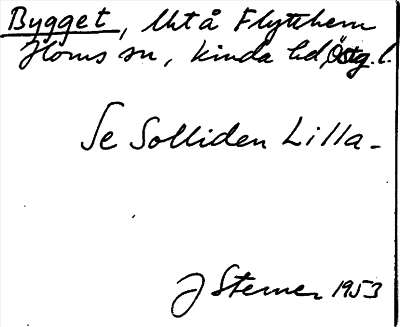 Bygget, Ukt å Flyttthem
Horns sn, Kinda hd, Östg. l.
Se Solliden Lilla -
J Sterner 1953